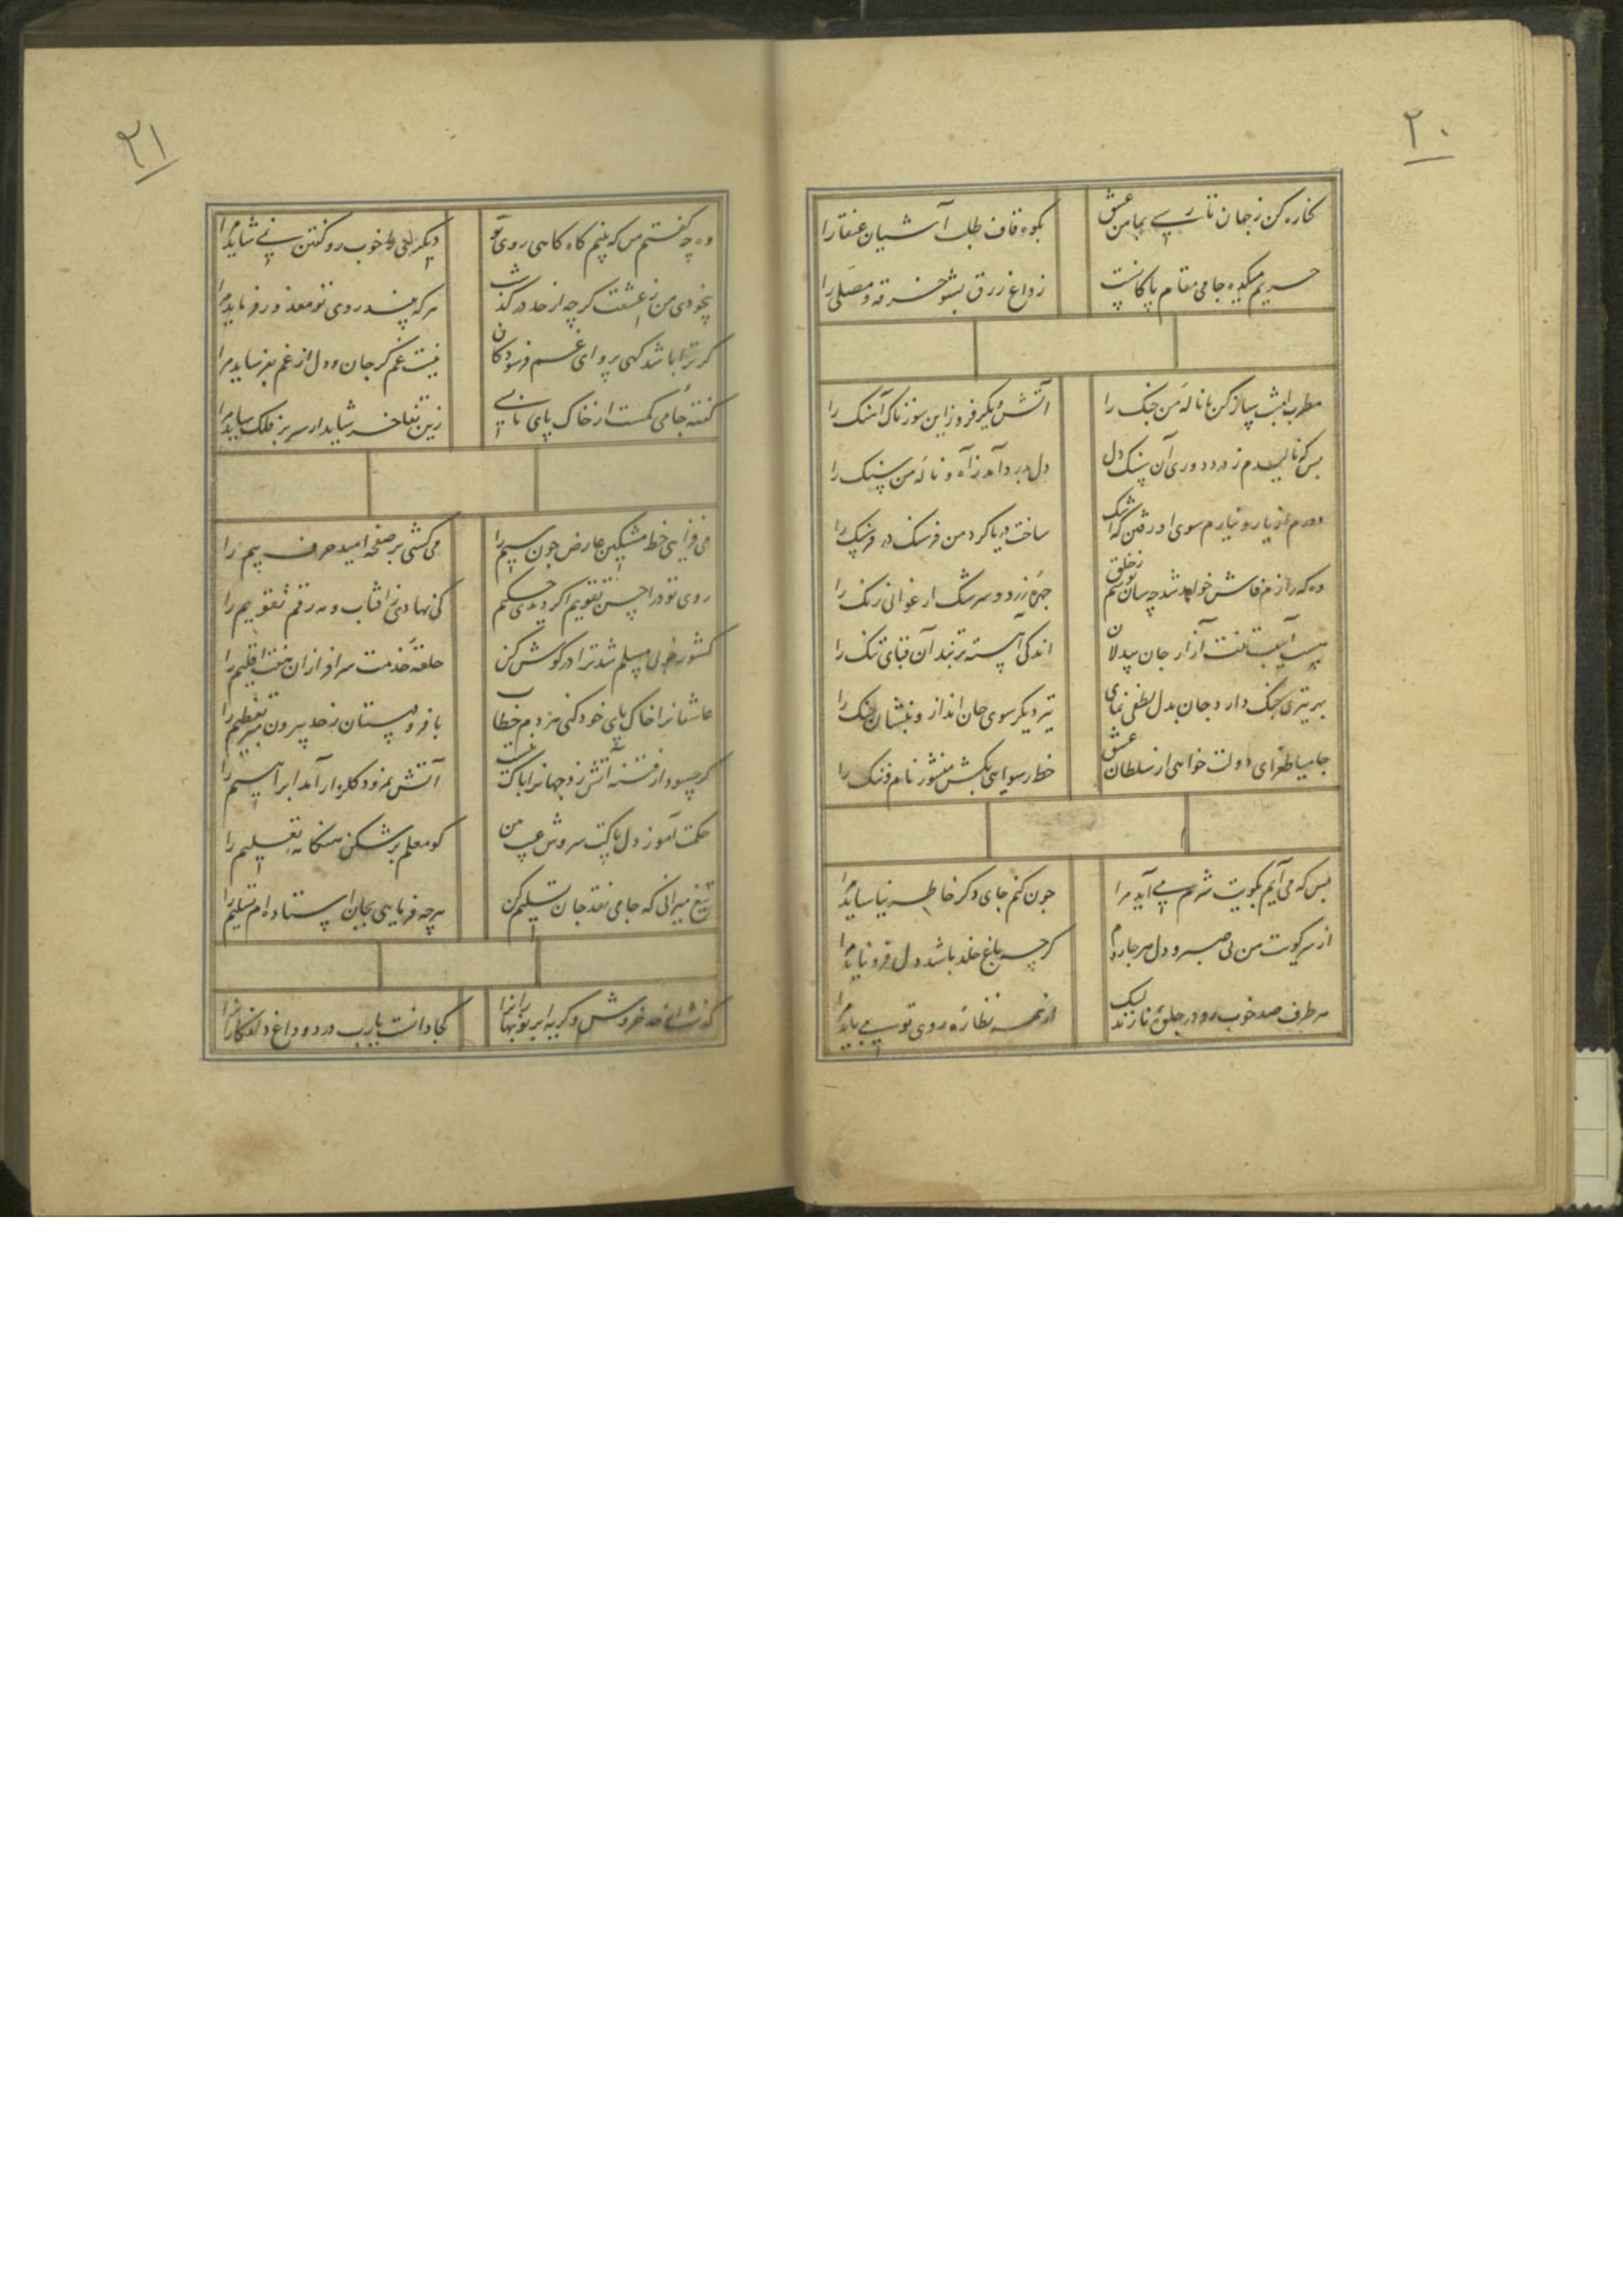 ۲۰
کناره کن ز جهان تا رسی بمامن عشق
بکوه قاف طلب آشیان عنقا را
حریم میکده جامی مقام پاکانست
ز داغ زرق بشو خرقه و مصلی را
مطرب امشب ساز کن با ناله من چنک را
آتش دیکر فروز این سوزناک آهنک را
بس که نالیدم ز درد دوری آن سنک دل
دل بدرد آمد ز آه و ناله من سنک را
دورم از یار و نیارم سوی او رفتن که اشک
ساخت دریا کرد من فرسنک در فرسنک را
وه که رازم فاش خواهد شد چه سان پوشم ز خلق
چهره زرد و سرشک ارغوانی رنک را
هست آسیب تنت آزار جان بیدلان
اندکی آهسته تر بند آن قبای تنک را
بهر تیری جنک دارد جان بدل لطفی نمای
تیر دیکر سوی جان انداز و بنشان جنک را
جامیا طغرای دولت خواهی از سلطان عشق
خط رسوایی بکش منشور نام و ننک را
بس که می آیم بکویت شرم می آید مرا
چون کنم جای دکر خاطر نیاساید مرا
از سر کویت من بی صبر و دل هر جا روم
کرچه باغ خلد باشد دل فرو ناید مرا
هر طرف صد خوب رو در جلوه نازند لیک
از همه نظاره روی تو می باید مرا
۲۱
وه چه گفتم من که بینم کاه کاهی روی تو
دیکر خوب رو کفتن نمی شاید مرا
بیخودی من ز عشقت کرچه از حد درکذشت
هر که بیند روی تو معذور فرماید مرا
کر ترا باشد کهی پروای غم فرسودکان
نیست غم کر جان و دل از غم بفرساید مرا
کفته جامی کمست از خاک پای ما بسی
زین تفاخر شاید ار سر بر فلک ساید مرا
می فزایی خط مشکین عارض چون سیم را
می کشی بر صفحه امید حرف بیم را
روی تو در احسن تقویم اکر دیدی حکیم
کی نهادی ز آفتاب و مه رقم تقویم را
کشور دل مسلم شد ترا در کوش کن
حلقه خدمت سرافرازان هفت اقلیم را
عاشقانرا خاک پای خود کنی هر دم خطاب
با فرودستان ز حد بیرون مبر تعظیم را
کر حسود از فتنه آتش زد جهانرا باک نیست
آتش نمرود کلزار آمد ابراهیم را
حکمت آموز دل پاکست سروش غیب من
کو معلم بر شکن هنکامه تعلیم را
تیغ میرانی که جامی نقد جان تسلیم کن
هرچه فرمایی بجان استاده ام تسلیم را
خروش و کریه ابر نوبهارانرا
کجا دانست یارب درد و داغ دلفکارانرا